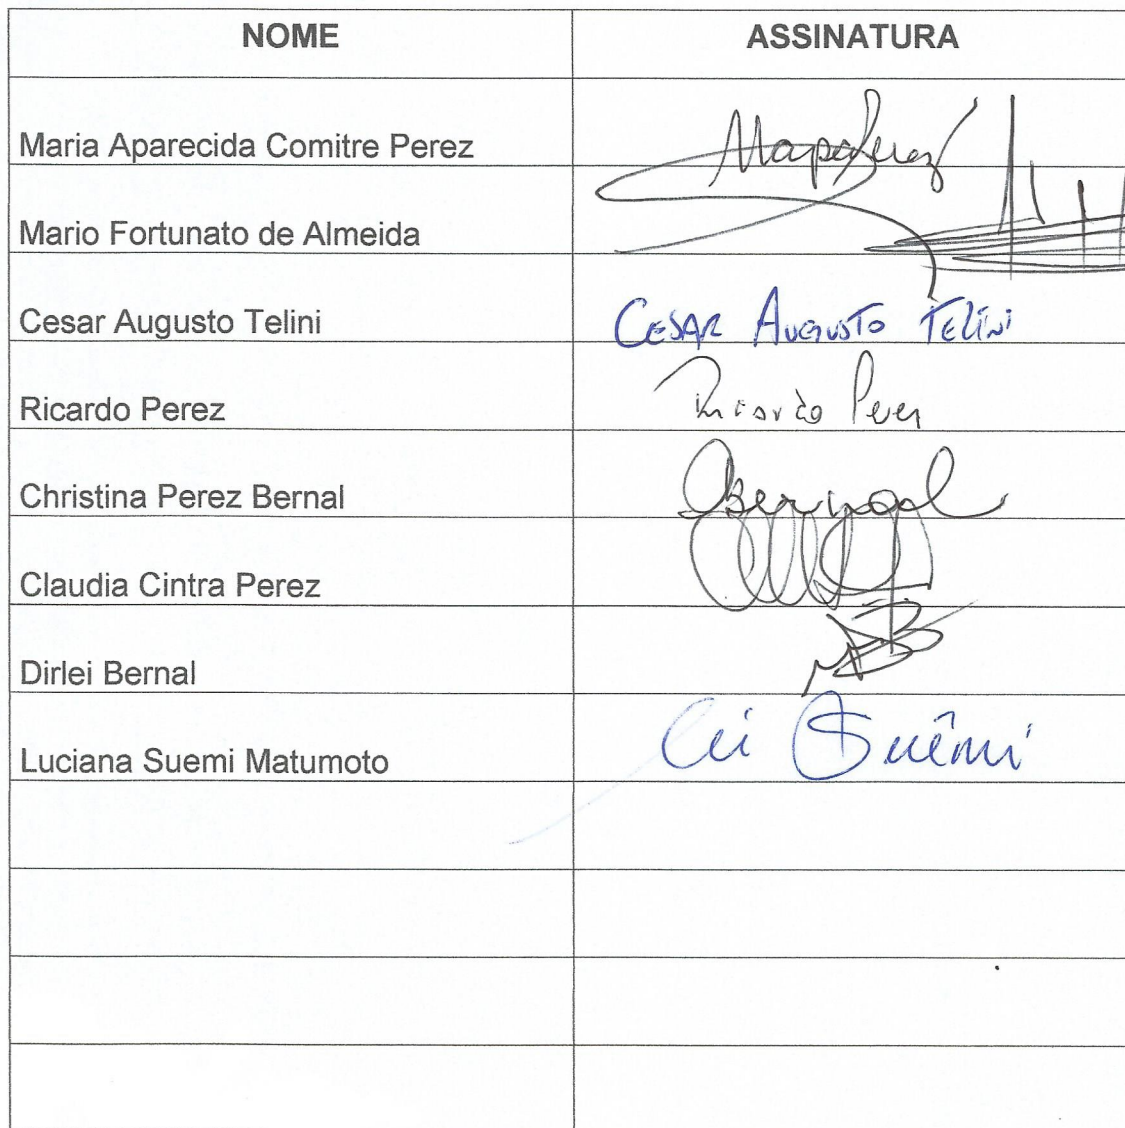 NOME ASSINATURA
Maria Aparecida Comitre Perez
Mario Fortunato de Almeida
Cesar Augusto Telini CESAR AUGUSTO TELINI
Ricardo Perez Ricardo Perez
Christina Perez Bernal CBernal
Claudia Cintra Perez
Dirlei Bernal
Luciana Suemi Matumoto Suêmi